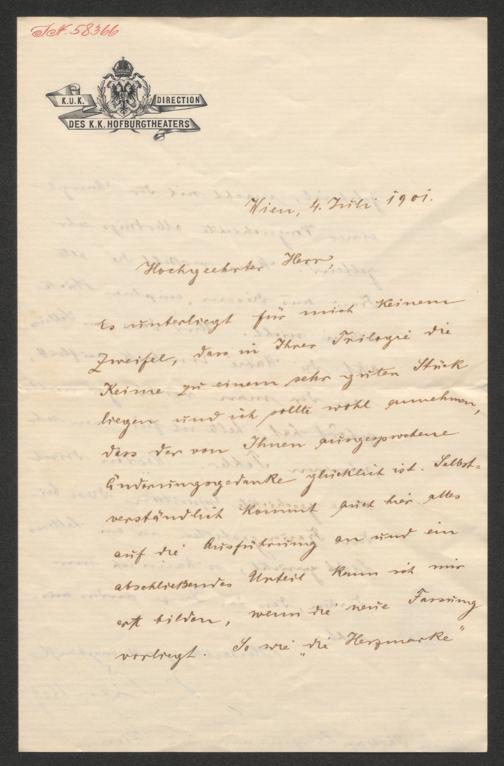 I.N. 58366
K.U.K. DIRECTION
DES K.K. HOFBURGTHEATERS
Wien, 4. Juli 1901.
Hochgeehrter Herr,
Es unterliegt für mich keinem
Zweifel, dass in Ihrer Trilogie die
Keime zu einem sehr guten Stück
liegen und ich sollte wohl annehmen,
dass der von Ihnen ausgesprochene
Änderungsgedanke glücklich ist. Selbst-
verständlich kommt auch hier alles
auf die Ausführung an und ein
abschließendes Urteil kann ich mir
erst bilden, wenn die neue Fassung
vorliegt. So wie „die Herzmarke“